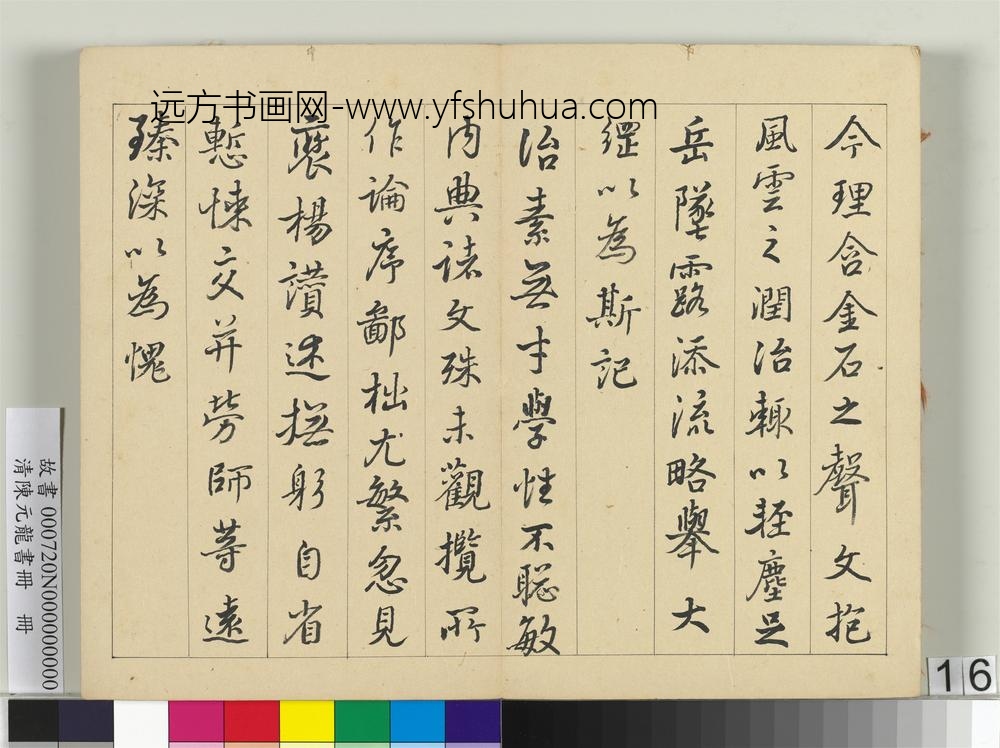 远方书画网-www.yfshuhua.com
今理含金石之聲文抱
風雲之潤治輒以輕塵足
岳墜露添流略舉大
綱以為斯記
治素無才學性不聡敏
内典諸文殊未觀攬所
作論序鄙拙尤繁忽見
褒揚讃述撫躬自省
慙悚交并勞師等遠
臻深以為愧
故書 000720N000000000
清陳元龍書冊 冊
16